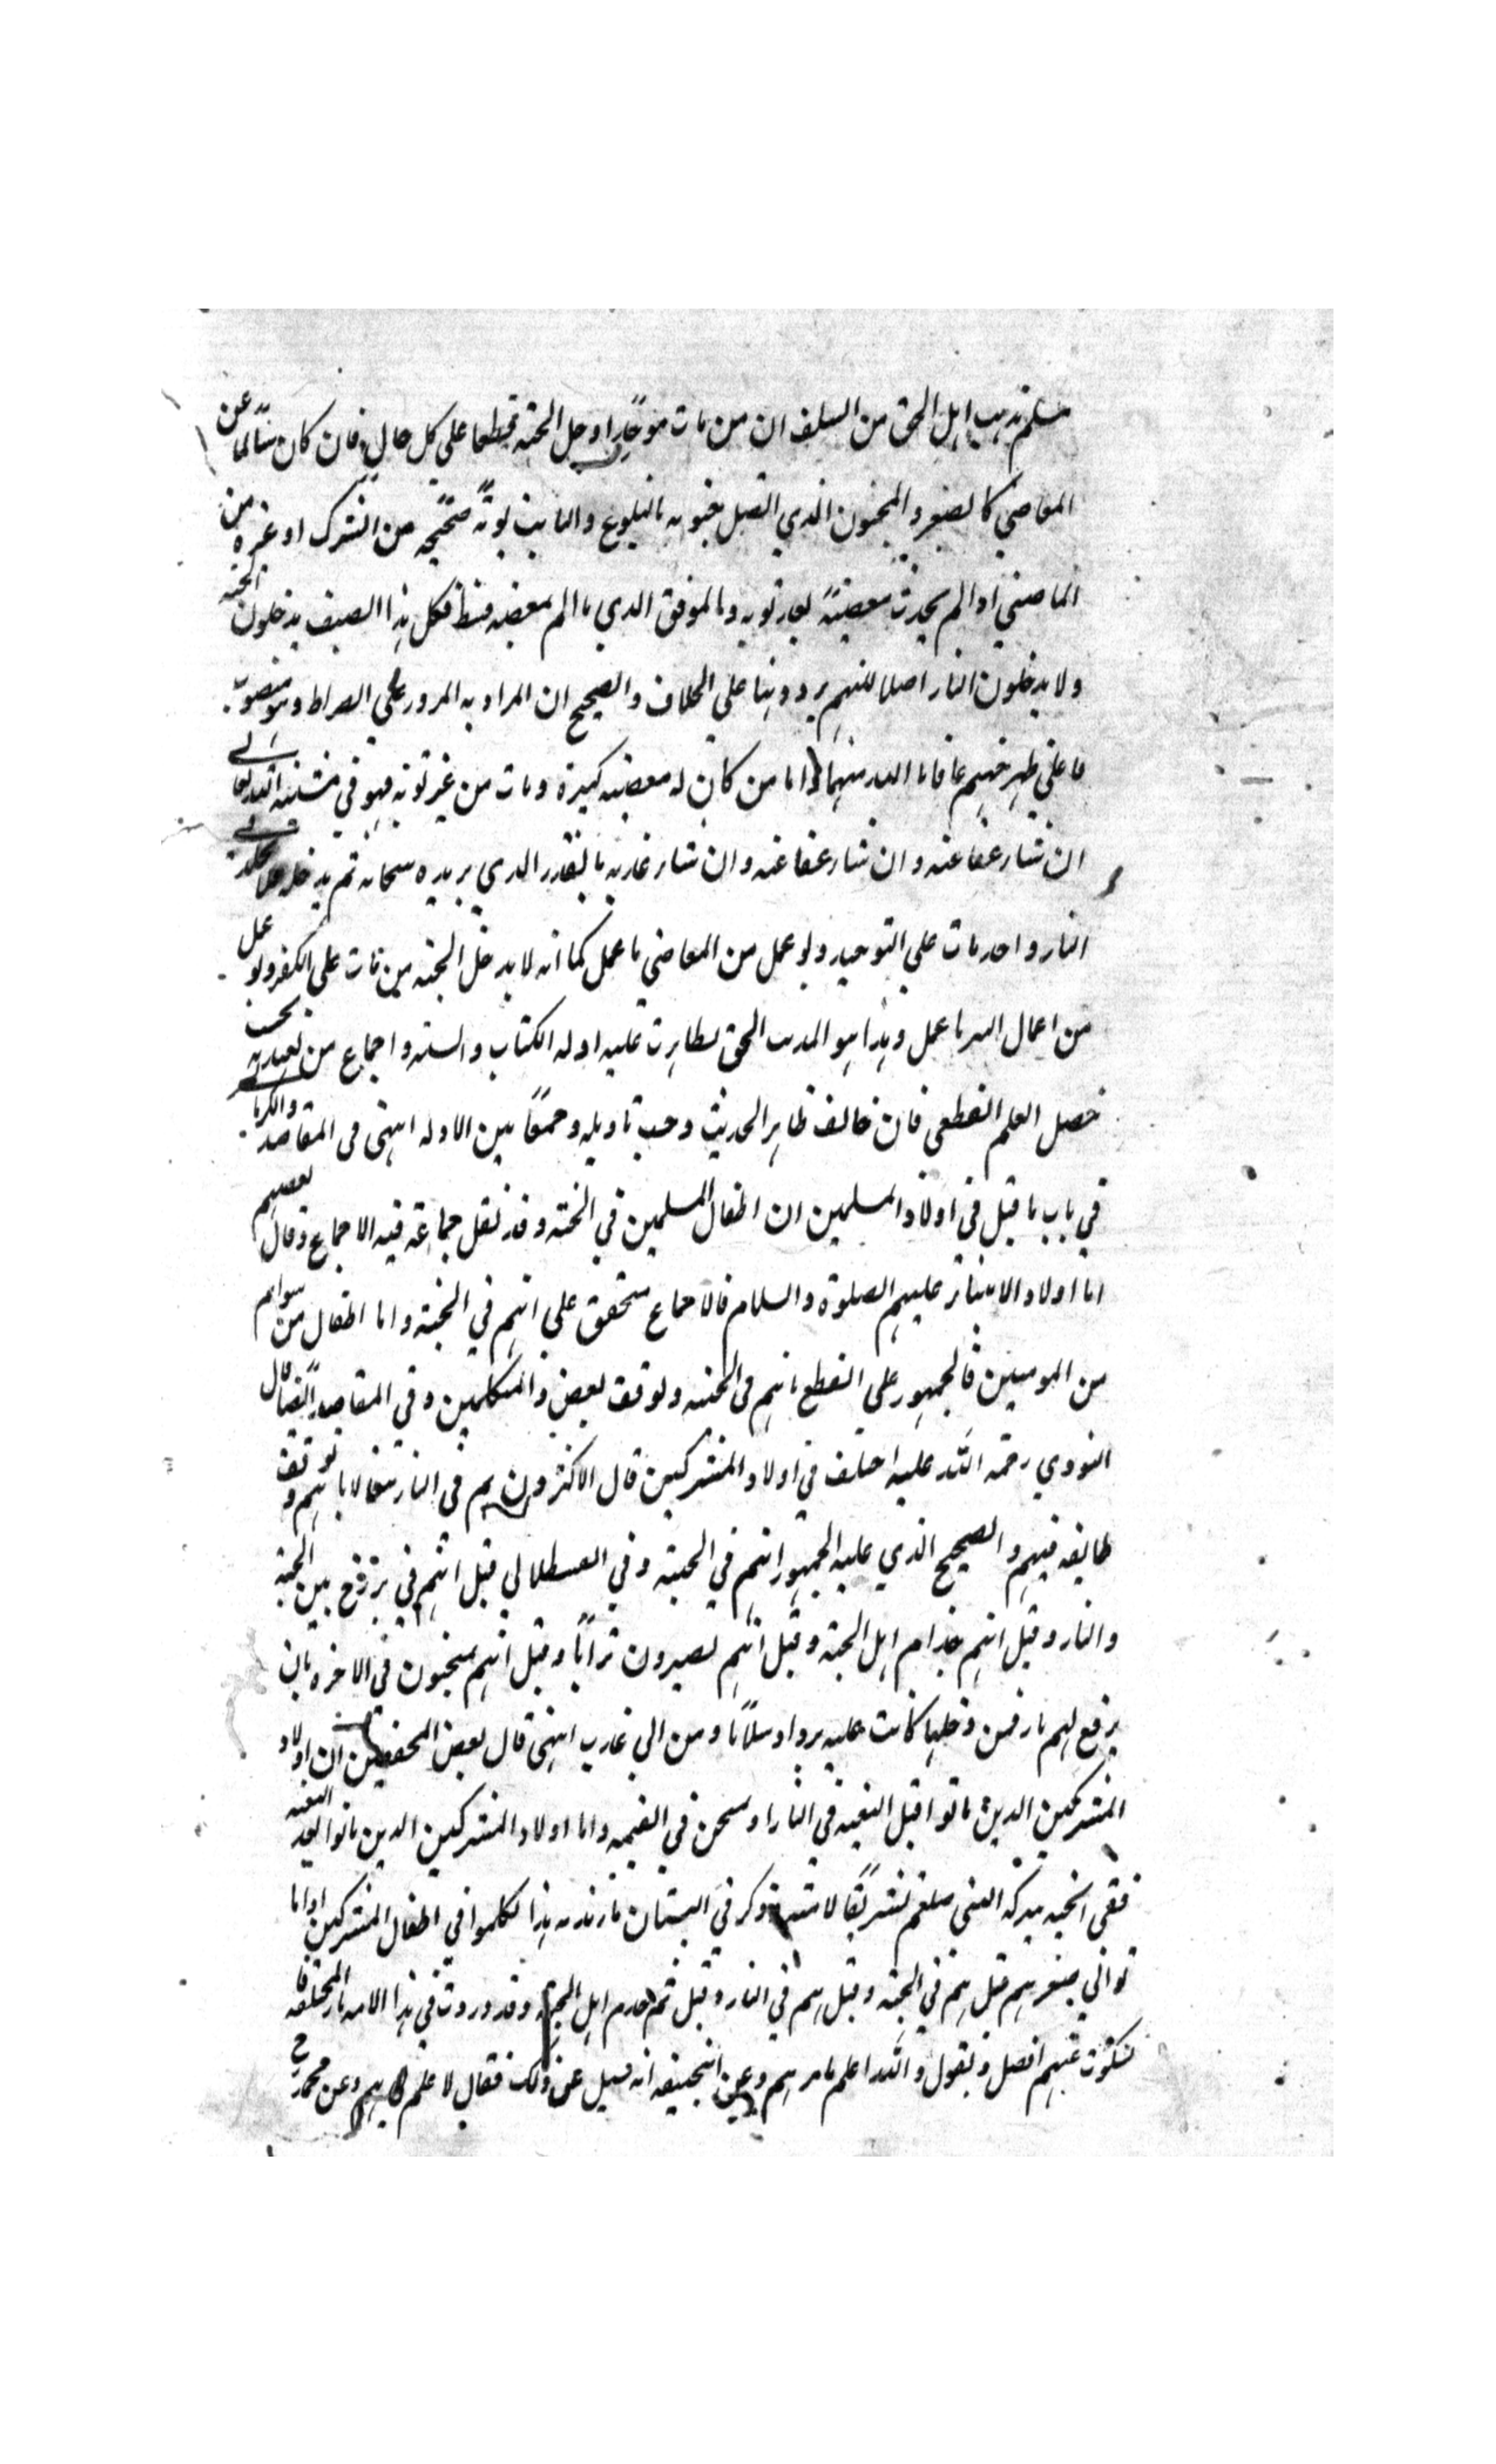 مسلم مذهب اهل الحق من السلف ان من مات موحدا دخل الجنة قطعا على كل حال فان كان سالما عن
المعاصي كالصغير والمجنون الذي اتصل جنونه بالبلوغ والتايب توبة صحيحه من الشرك او غيره من
المعاصي اذا لم يحدث معصية بعد توبه والموفق الذي ما الم بمعصيه قط فكل هذا الصنف يدخلون الجنه
ولا يدخلون النار اصلا لكنهم يردونها على الخلاف والصحيح ان المراد به المرور على الصراط وهو منصوب
على ظهر جهنم عافانا الله منها واما من كان له معصيه كبيرة ومات من غير توبه فهو في مشية الله تعالى
ان شاء عفا عنه وان شاء عفا عنه وان شاء عذبه بالقدر الذي يريده سبحانه ثم يدخله
النار واحد مات على التوحيد ولو عمل من المعاصي ما عمل كما انه لا يدخل الجنه من مات على الكفر ولو عمل
من اعمال البر ما عمل وهذا هو المذهب الحق تظاهرت عليه ادله الكتاب والسنه واجماع من يعتد به بحيث
حصل العلم القطعي فان خالف ظاهر الحديث وجب تاويله وجمعا بين الادله انتهى في المقاصد والكرماني
في باب ما قيل في اولاد المسلمين ان اطفال المسلمين في الجنه وقد نقل جماعة فيه الاجماع وقال بعضهم
اما اولاد الانبياء عليهم الصلوة والسلام فالاجماع متحقق على انهم في الجنة واما اطفال من سواهم
من المومنين فالجمهور على القطع بانهم في الجنه وتوقف بعض المتكلمين وفي المقاصد ايضا قال
النووي رحمة الله عليه اختلف في اولاد المشركين قال الاكثرون هم في النار تبعا لابائهم وتوقف
طايفه فيهم والصحيح الذي عليه الجمهور انهم في الجنة وفي القسطلاني قيل انهم في برزخ بين الجنة
والنار وقيل انهم خدام اهل الجنة وقيل انهم يصيرون ترابا وقيل انهم ممتحنون في الاخره بان
يرفع لهم نار فمن دخلها كانت عليه بردا وسلاما ومن ابى عذب انتهى قال بعض المحققين ان اولاد
المشركين الذين ماتوا قبل البعثه في النار وامتحن في القيمه واما اولاد المشركين الذين ماتوا بعد البعثه
ففي الجنه ببركه النبي صلعم تشريفا لامته وذكر في البستان هذا تكلموا في اطفال المشركين اذا ما
توا في صغرهم قيل هم في الجنة وقيل هم في النار وقيل هم خدم اهل الجنة وقد وردت في هذا الاثار المختلفه فا
لسكوت عنهم افضل ونقول والله اعلم بامرهم وعن ابيحنيفه انه سيل عن ذلك فقال لا علم لي بهم وعن محمد رح